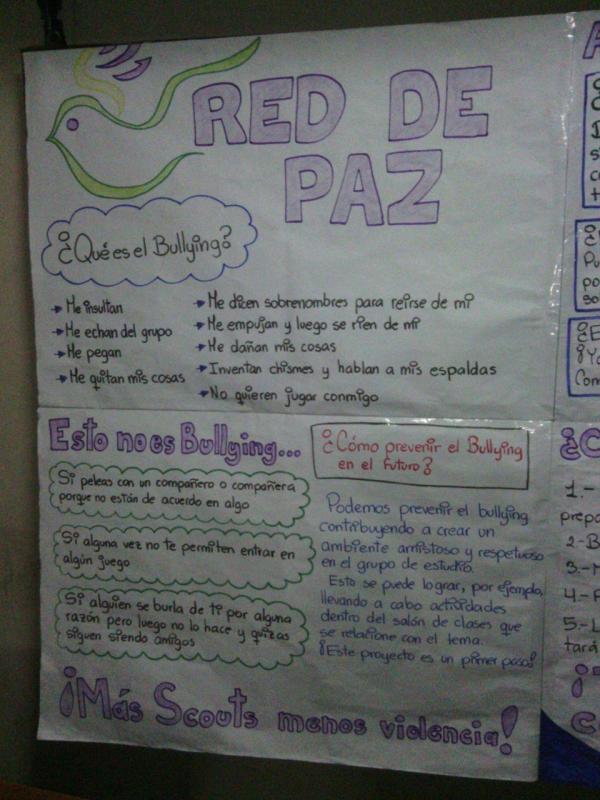 RED DE
PAZ
¿Qué es el Bullying?
Me insultan
Me echan del grupo
Me pegan
Me quitan mis cosas
Me dicen sobrenombres para reirse de mi
Me empujan y luego se rien de mi
Me dañan mis cosas
Inventan chismes y hablan a mis espaldas
No quieren jugar conmigo
Esto no es Bullying...
Si peleas con un compañero o compañera
porque no están de acuerdo en algo
Si alguna vez no te permiten entrar en
algún juego
Si alguien se burla de ti por alguna
razón pero luego no lo hace y quizas
siguen siendo amigos
¿Cómo prevenir el Bullying
en el futuro?
Podemos prevenir el bullying
contribuyendo a crear un
ambiente amistoso y respetuoso
en el grupo de estudio.
Esto se puede lograr, por ejemplo,
llevando a cabo actividades
dentro del salón de clases que
se relacione con el tema.
¡Este proyecto es un primer paso!
¡Más Scouts menos violencia!
1.-
2-
3.-
4-
5.-
tará